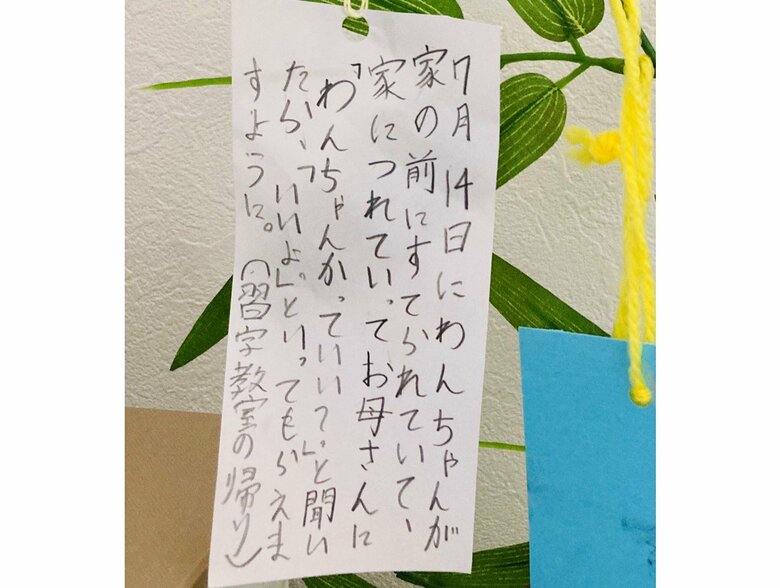 7月14日にわんちゃんが
家の前にすてられていて、
家につれていってお母さんに
「わんちゃんかっていい?」と聞い
たら、「いいよ。」といってもらえま
すように。(習字教室の帰り)